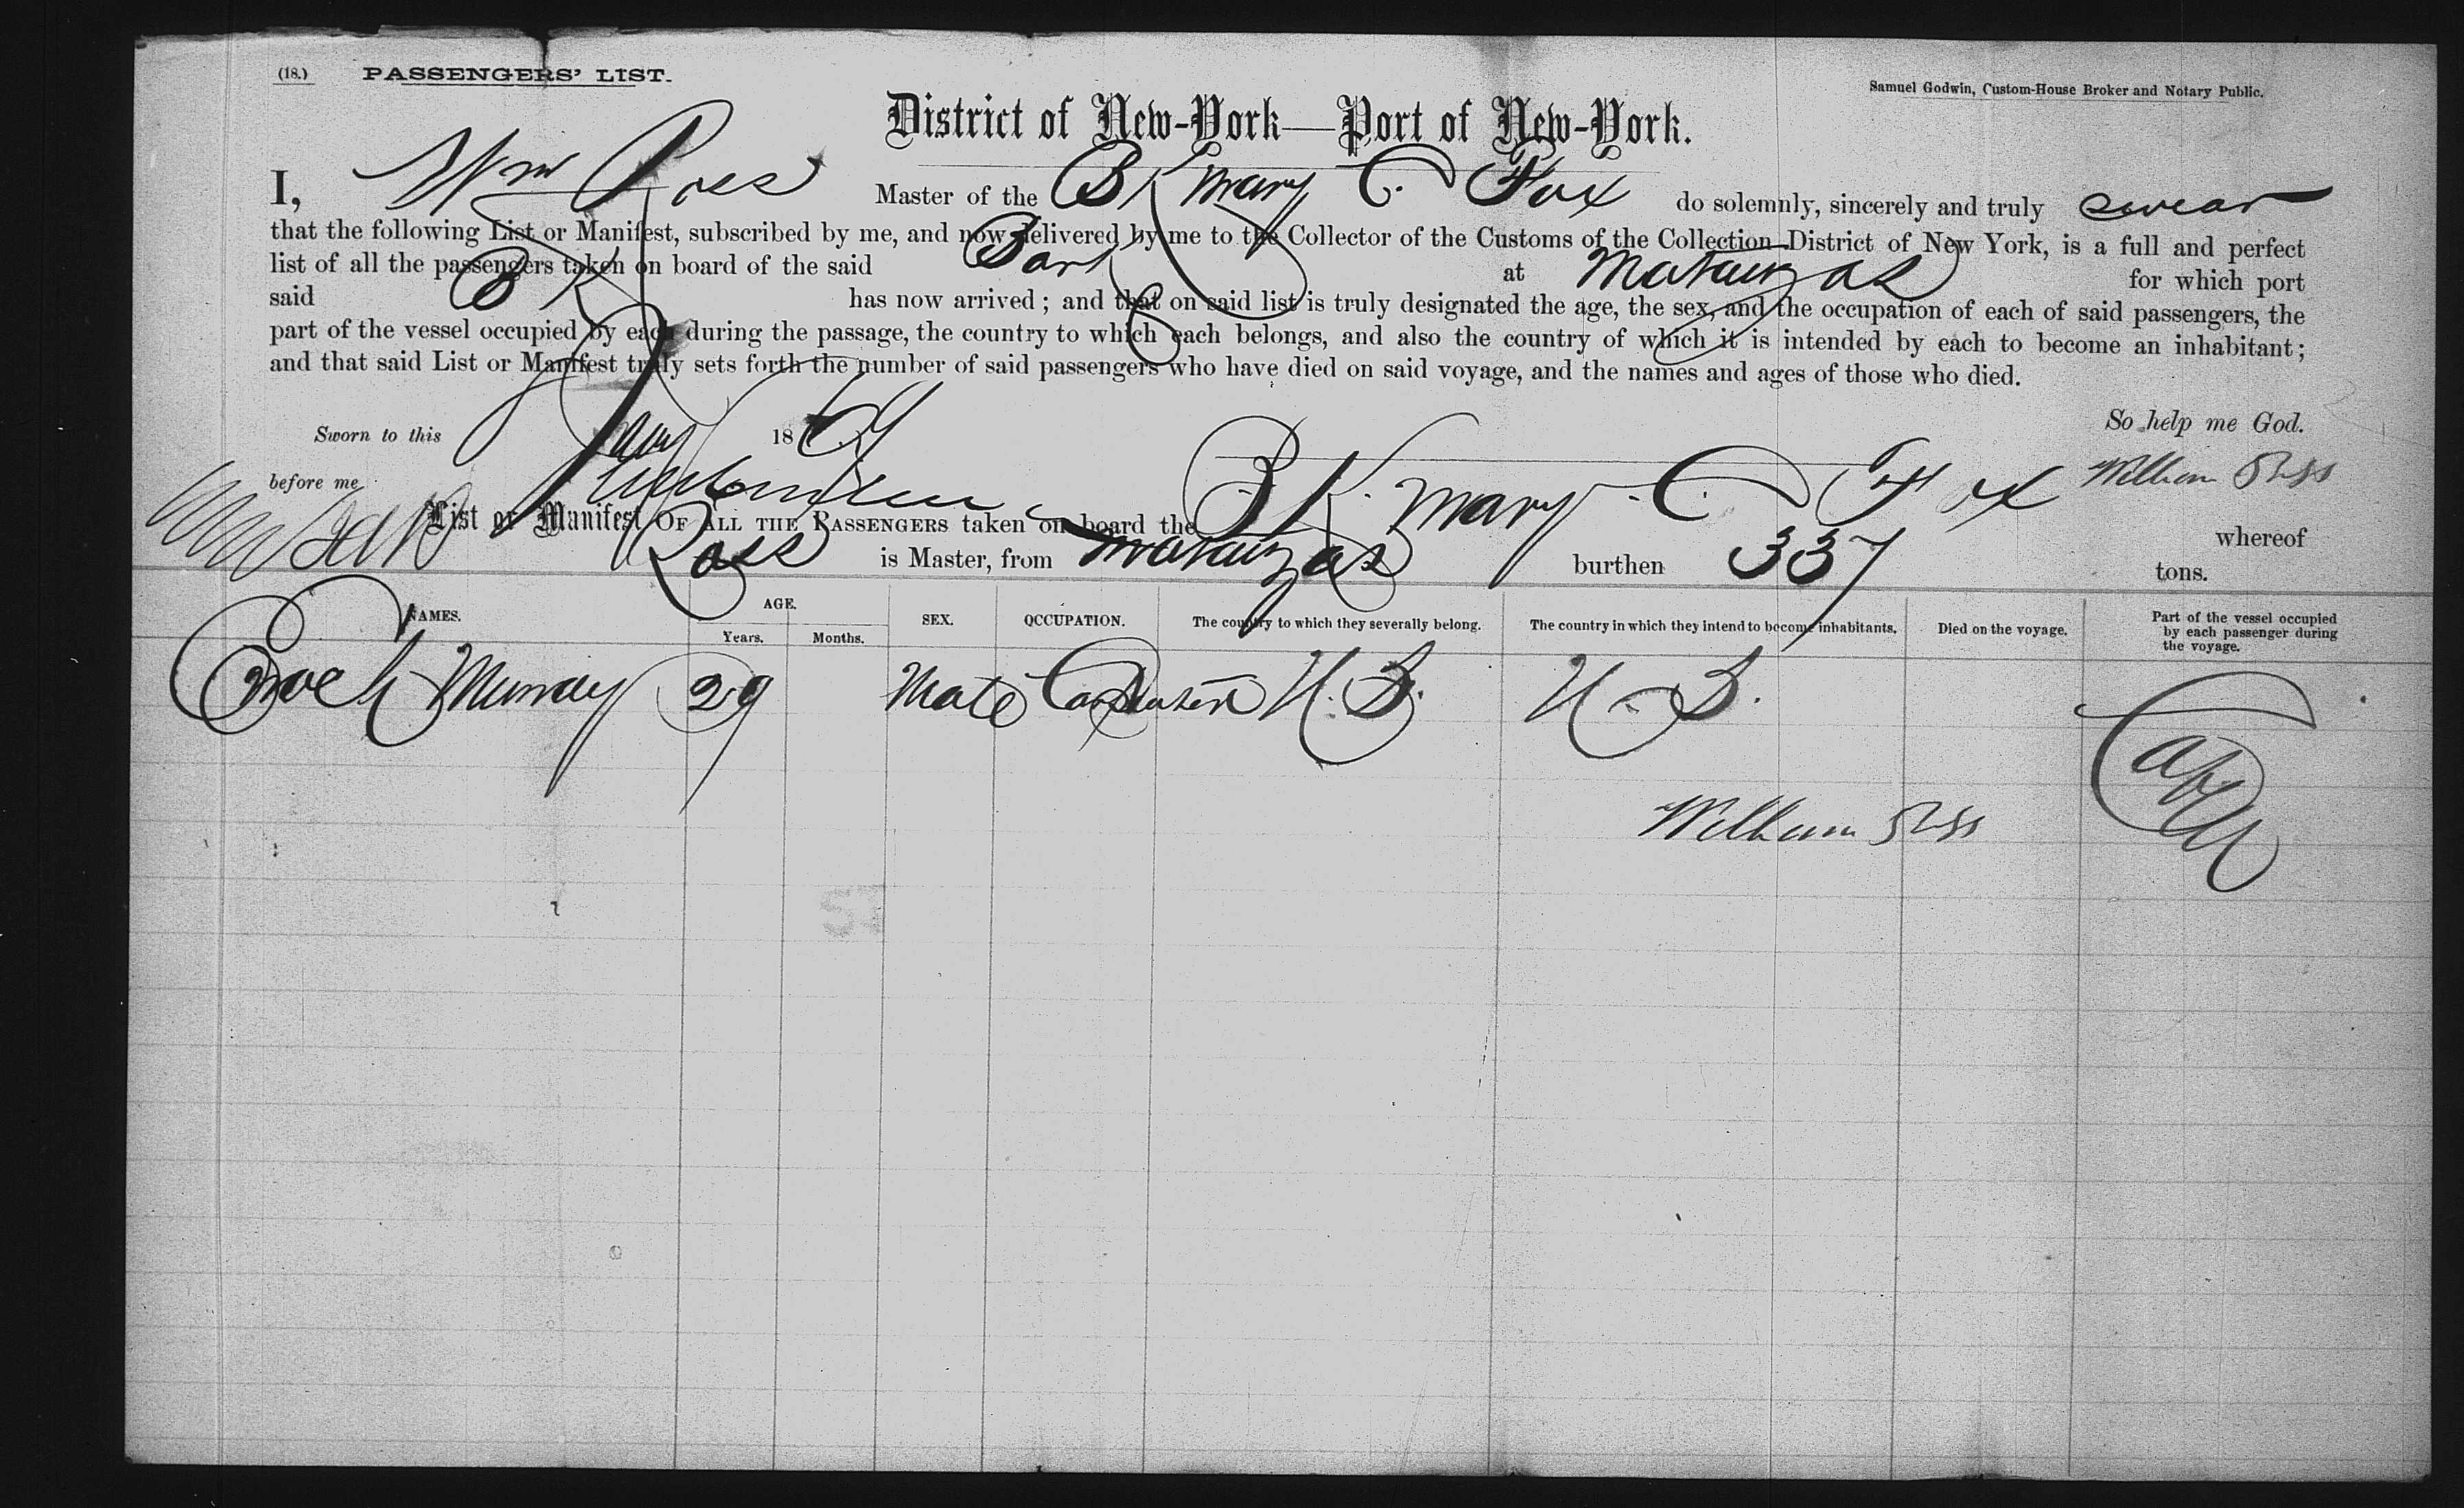 (18.) PASSENGERS' LIST.
Samuel Godwin, Custom-House Broker and Notary Public.
District of New-York—Port of New-York.
I, Wm Ross Master of the Bk Mary C. Fox do solemnly, sincerely and truly swear
that the following List or Manifest, subscribed by me, and now delivered by me to the Collector of the Customs of the Collection District of New York, is a full and perfect
list of all the passengers taken on board of the said Bark at Matanzas for which port
said Bk has now arrived; and that on said list is truly designated the age, the sex, and the occupation of each of said passengers, the
part of the vessel occupied by each during the passage, the country to which each belongs, and also the country of which it is intended by each to become an inhabitant;
and that said List or Manifest truly sets forth the number of said passengers who have died on said voyage, and the names and ages of those who died.
So help me God.
Sworn to this 18
before me William Ross
List or Manifest OF ALL THE PASSENGERS taken on board the Bk. Mary C. Fox whereof
Ross is Master, from Matanzas burthen 337 tons.
NAMES. AGE. Years. Months. SEX. OCCUPATION. The country to which they severally belong. The country in which they intend to become inhabitants. Died on the voyage. Part of the vessel occupied by each passenger during the voyage.
Enoch Murray 29 Male U.S. U.S.
William Ross